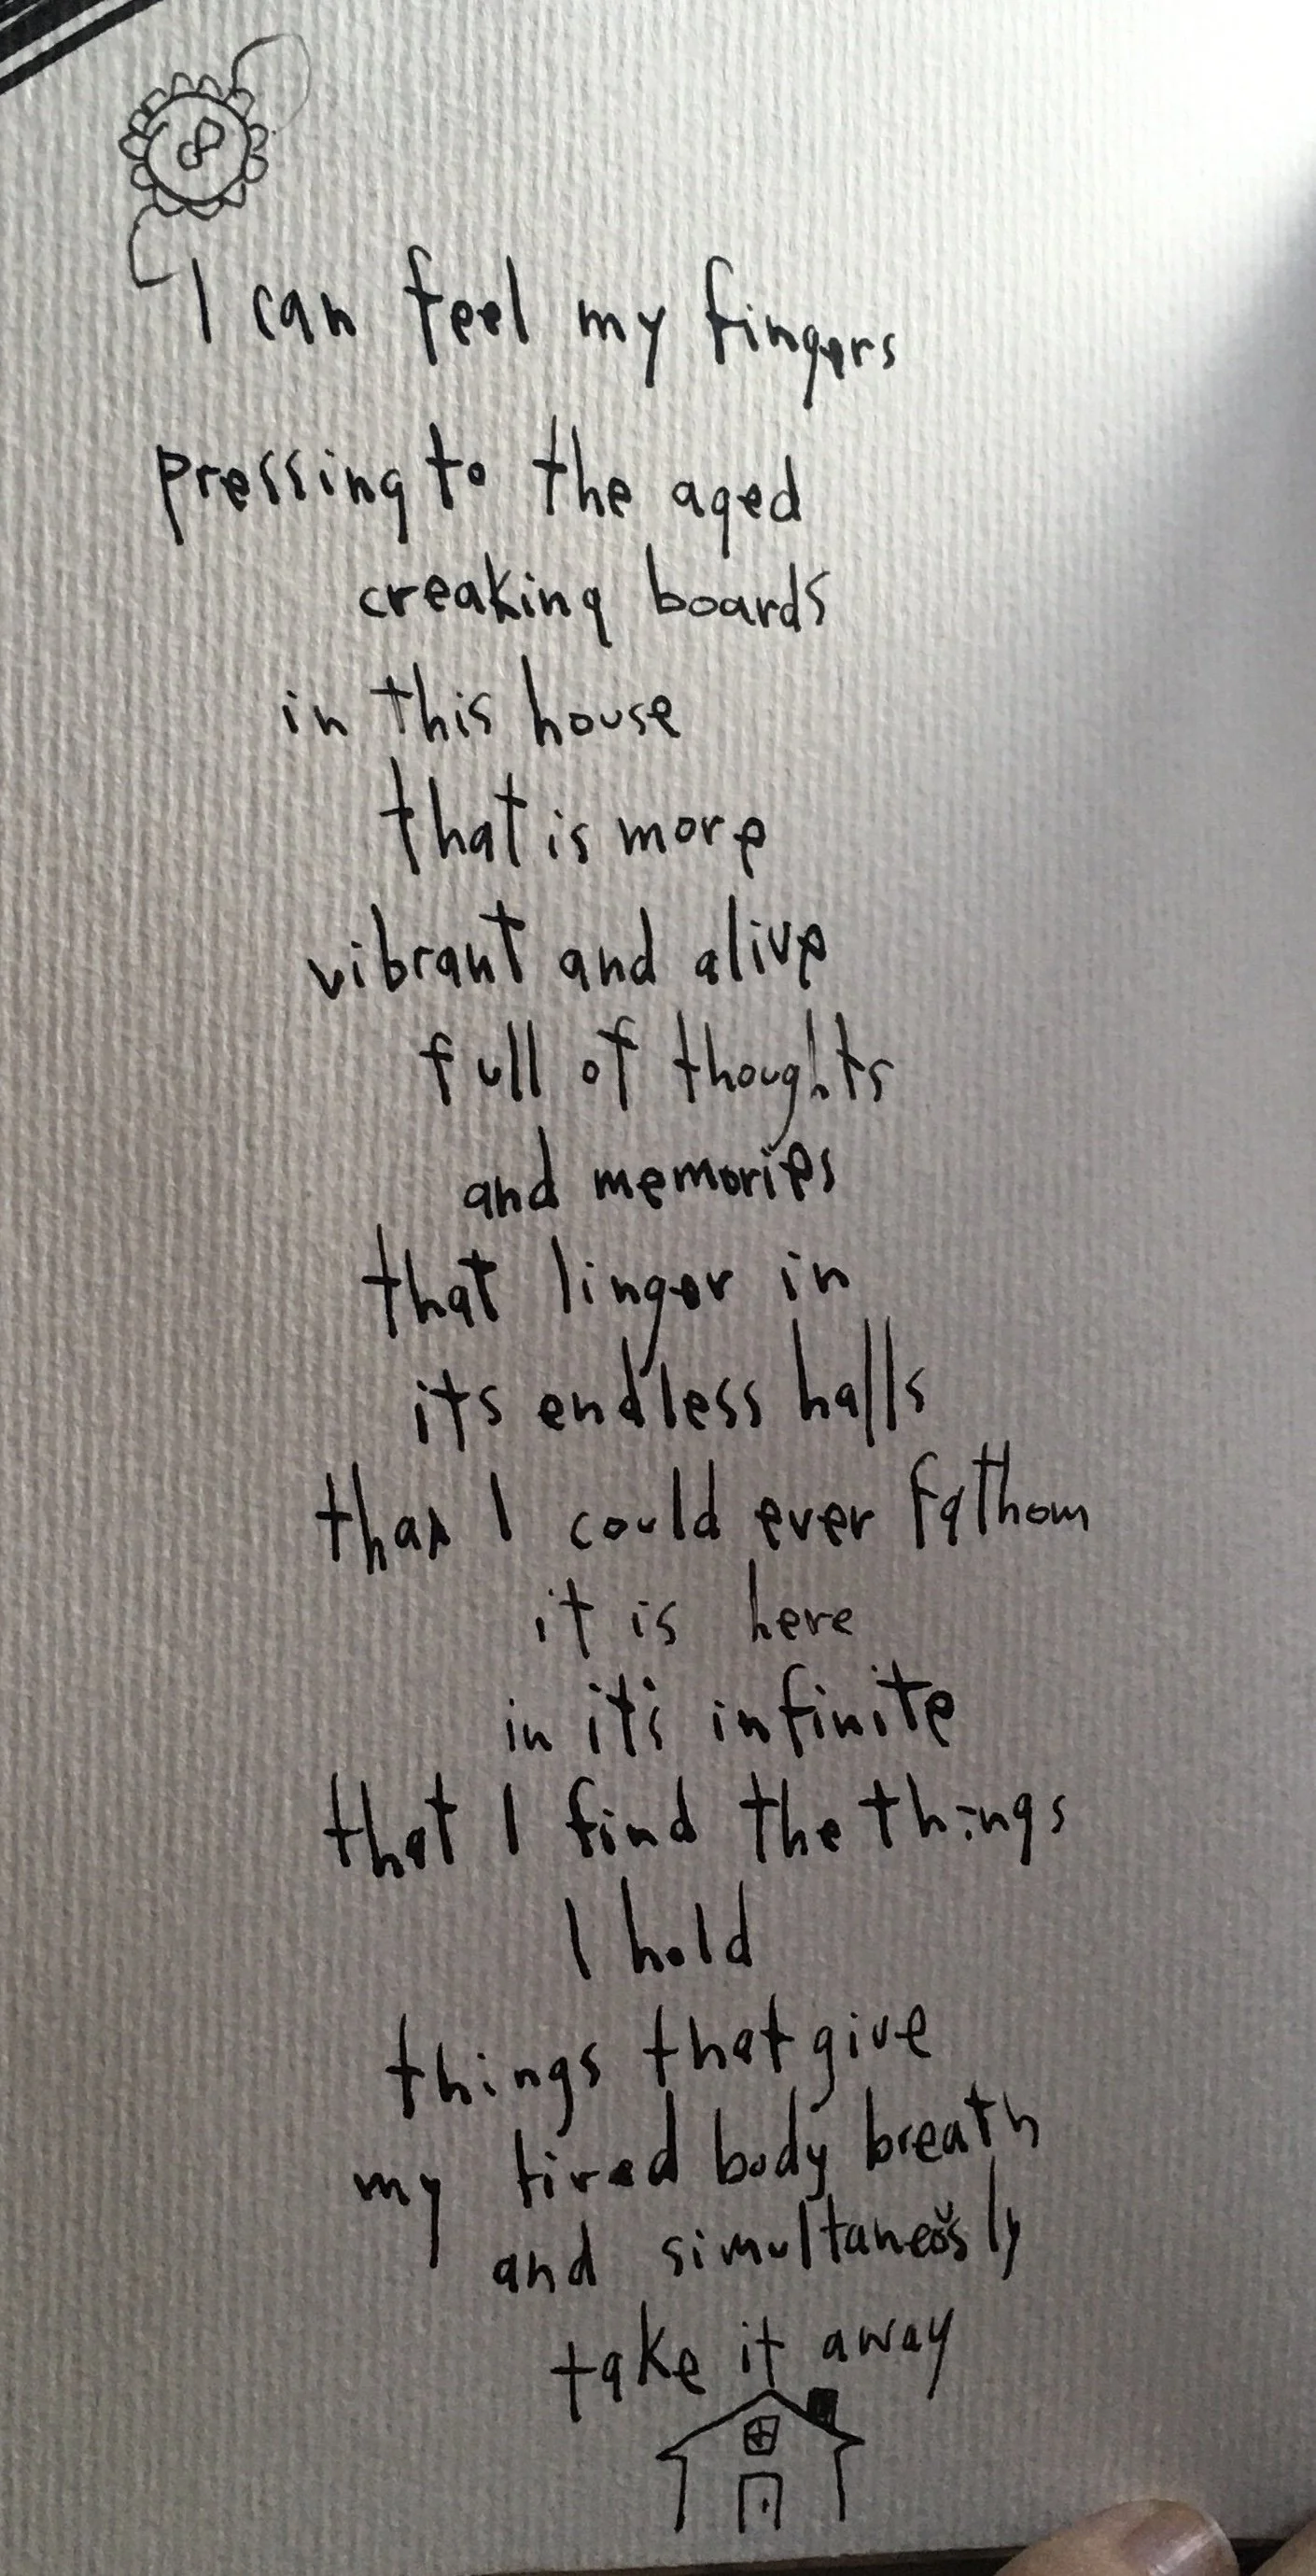 8
I can feel my fingers
pressing to the aged
creaking boards
in this house
that is more
vibrant and alive
full of thoughts
and memories
that linger in
its endless halls
than I could ever fathom
it is here
in it's infinite
that I find the things
I hold
things that give
my tired body breath
and simultaneously
take it away